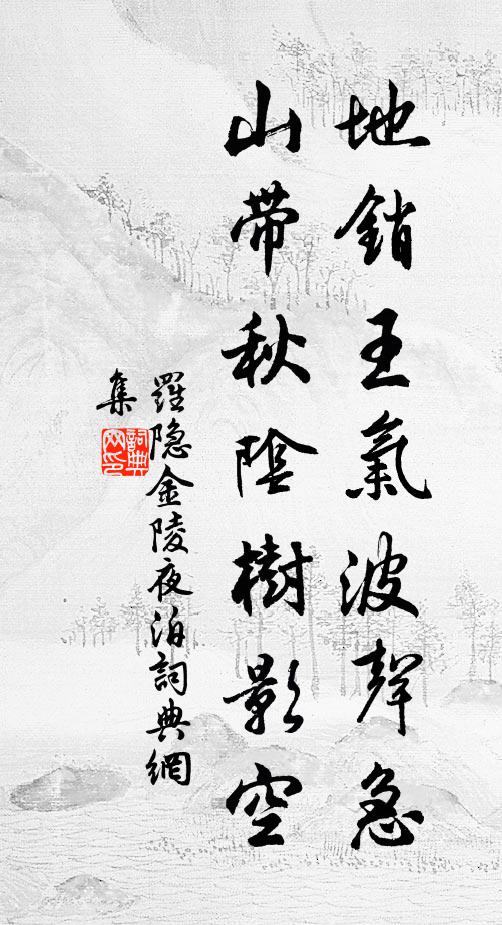 地銷王氣波聲急
山帶秋陰樹影空
羅隐金陵夜泊詞典網
集
詞典網印